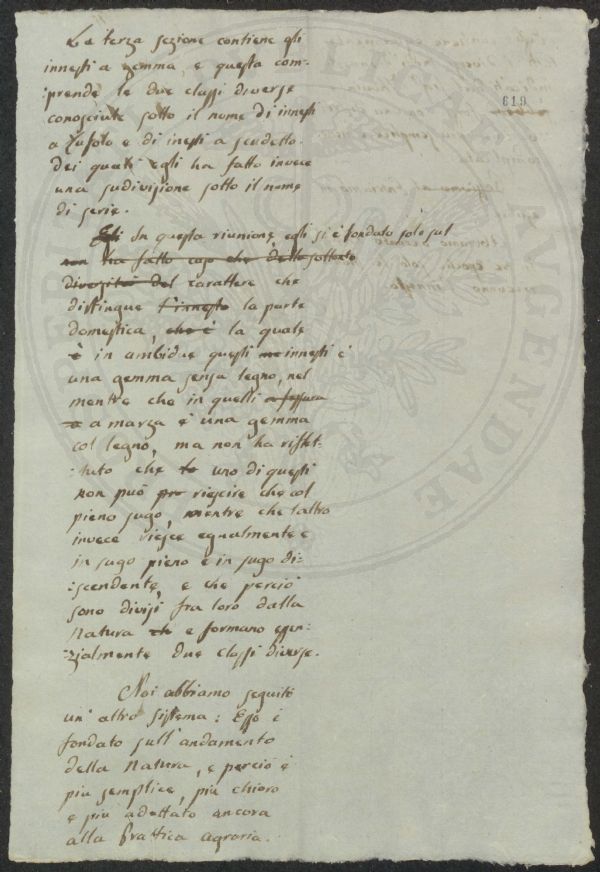 La terza sezione contiene gli
innesti a gemma, e questa com-
:prende le due classi diverse
conosciute sotto il nome di innesti
a Zufolo e di inesti a scudetto.
Dei quali egli ha fatto invece
una sudivisione sotto il nome
di serie.
619
Egli In questa riunione, egli si è fondato solo sul
non ha fatto caso che dello
diversità del carattere che
distingue l'innesto la parte
domestica, che è la quale
è in ambidue questi innesti è
una gemma senza legno, nel
mentre che in quelli a fessura
a marza è una gemma
col legno, ma non ha riflet-
:tuto che uno di questi
non può riescire che col
pieno sugo, mentre che l'altro
invece riesce egualmente e
in sugo pieno e in sugo di-
:scendente, e che perciò
sono divisi fra loro dalla
Natura e formano essen-
:zialmente due classi diverse.
Noi abbiamo seguiti
un' altro sistema: Esso è
fondato sull' andamento
della Natura, e perciò è
piu semplice, più chiaro
e più adattato ancora
alla prattica agraria.